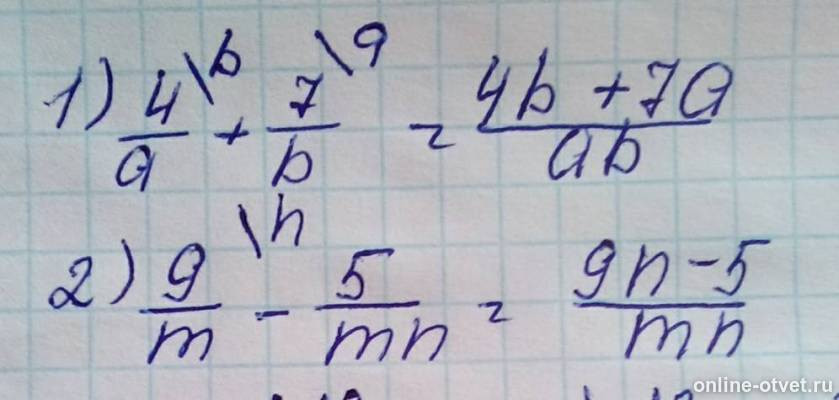 1) 4/a \b + 7/b \a = 4b + 7a/ab
2) 9/m \n - 5/mn = 9n - 5/mn
online-otvet.ru